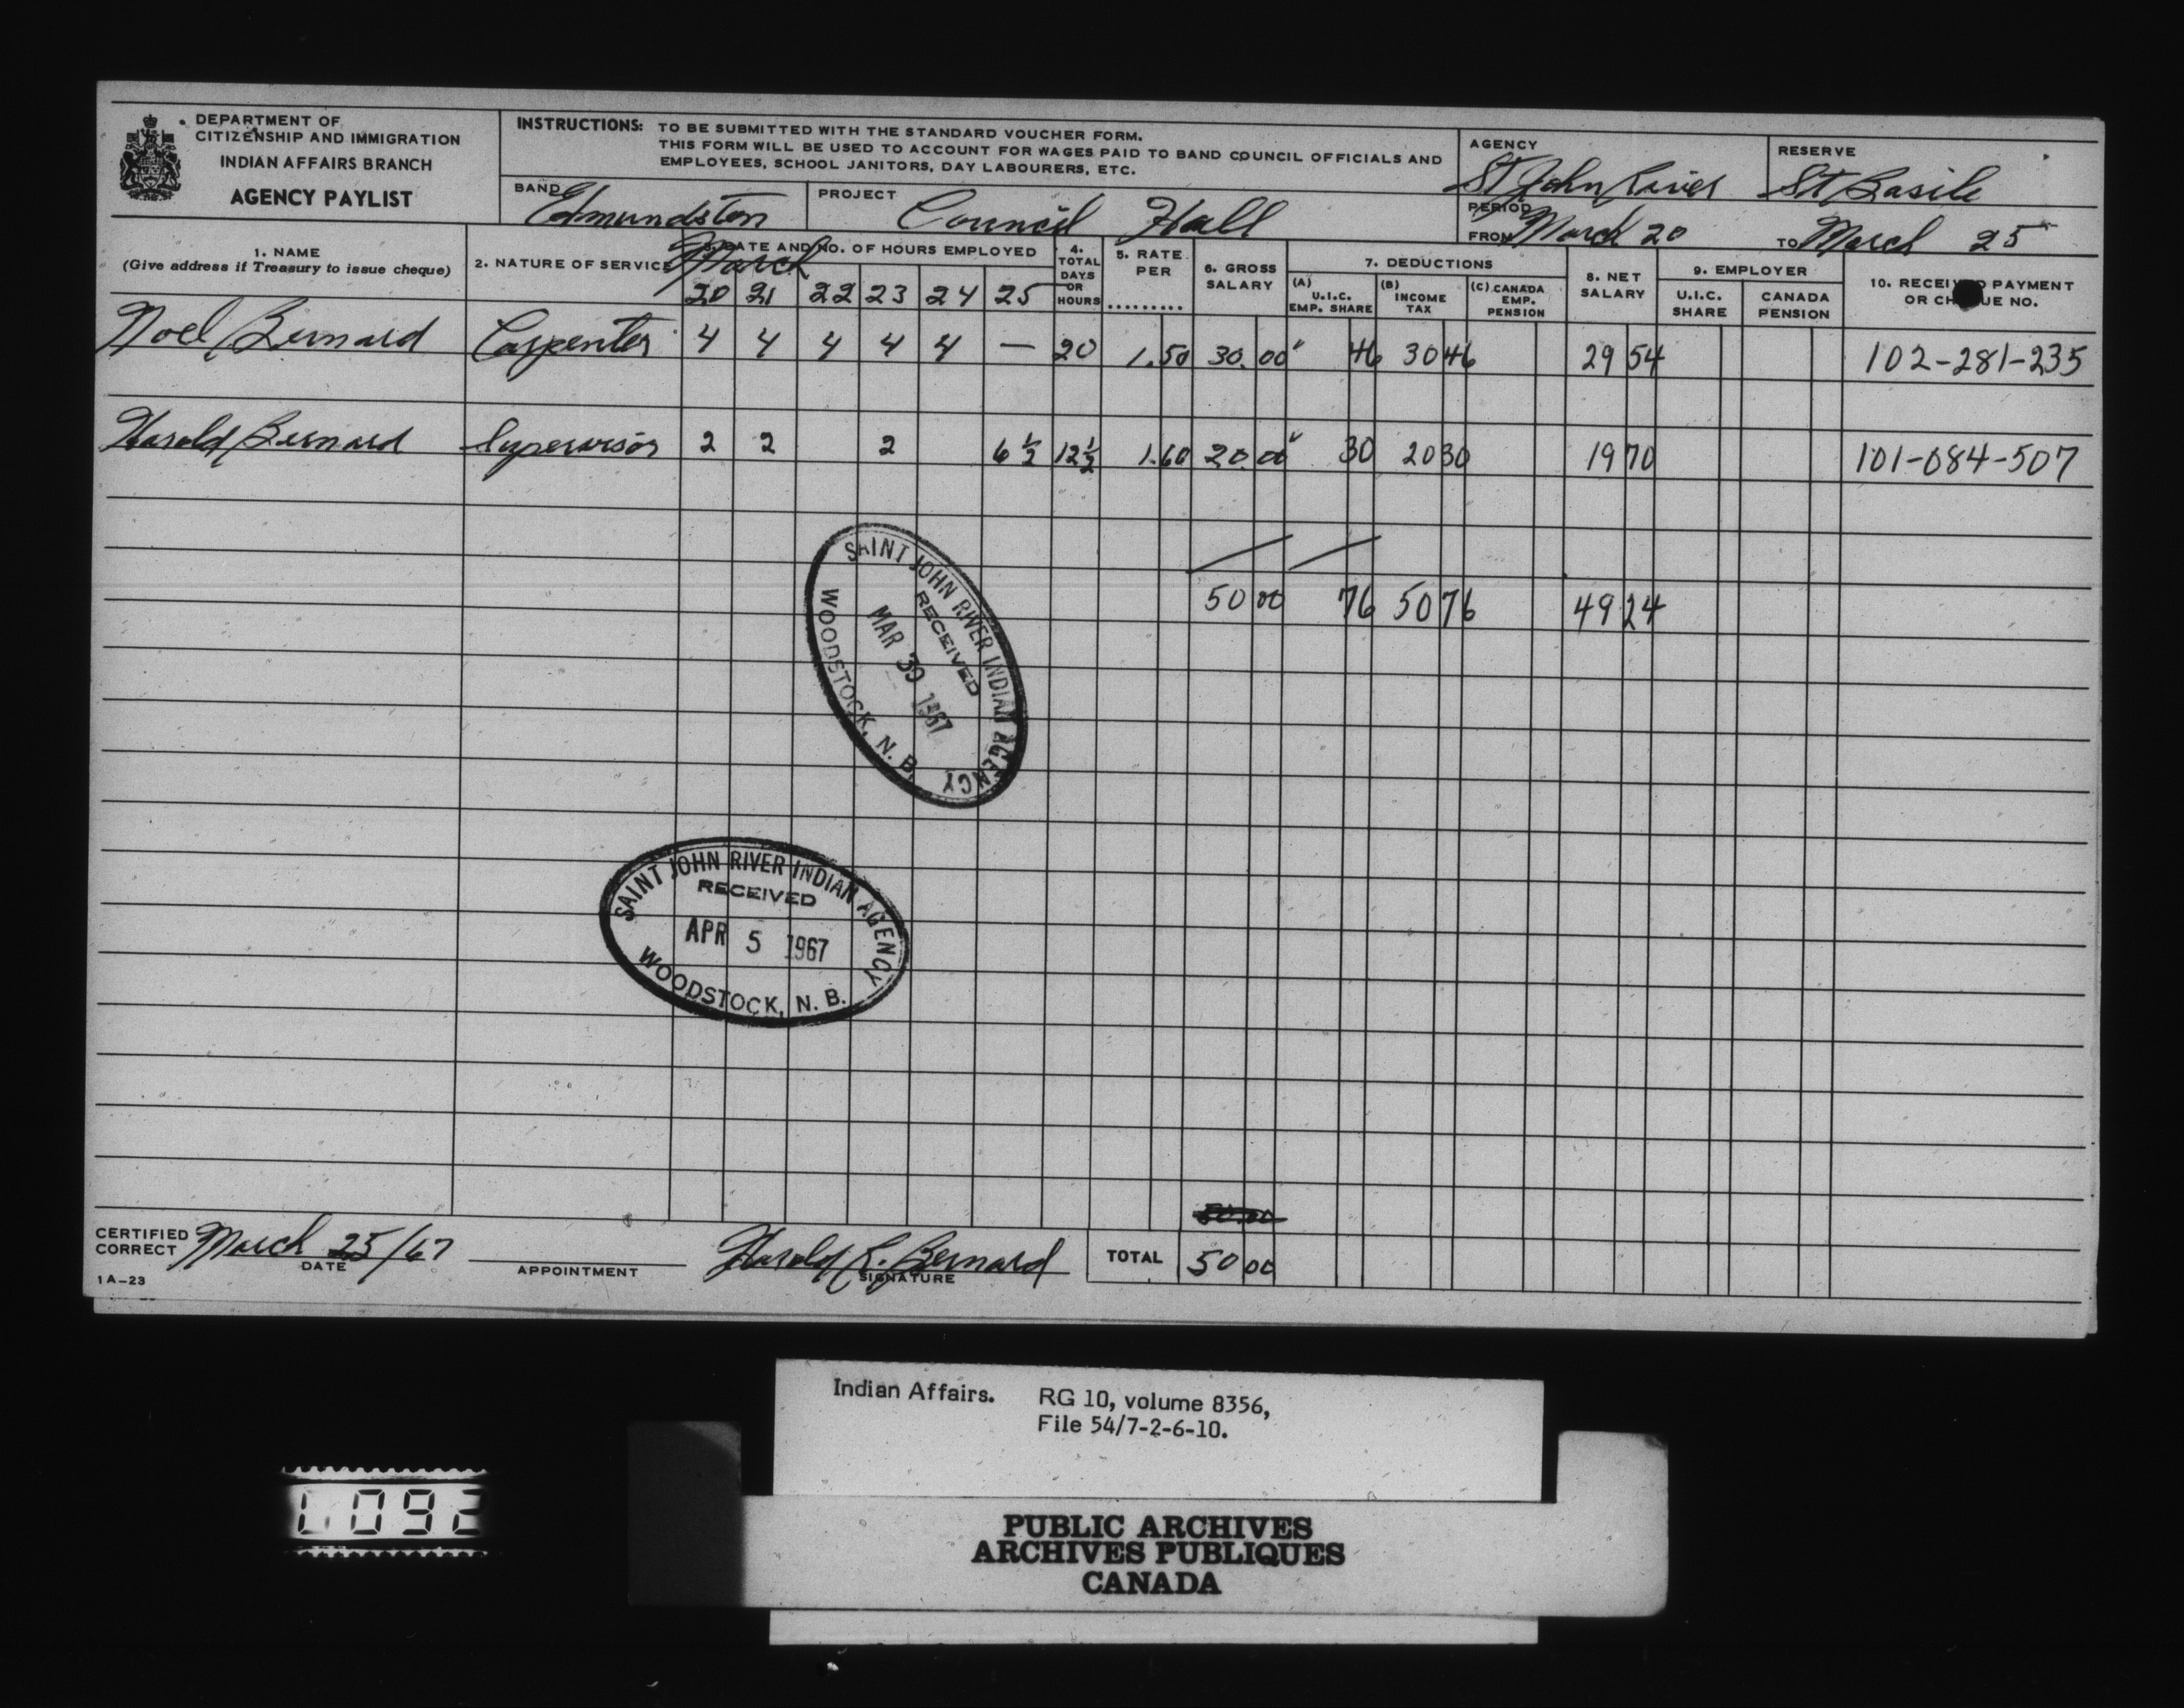 DEPARTMENT OF
CITIZENSHIP AND IMMIGRATION
INDIAN AFFAIRS BRANCH
AGENCY PAYLIST
INSTRUCTIONS: TO BE SUBMITTED WITH THE STANDARD VOUCHER FORM.
THIS FORM WILL BE USED TO ACCOUNT FOR WAGES PAID TO BAND COUNCIL OFFICIALS AND
EMPLOYEES, SCHOOL JANITORS, DAY LABOURERS, ETC.
AGENCY St John River
RESERVE St Basile
BAND Edmundston
PROJECT Council Hall
PERIOD
FROM March 20 TO March 25
1. NAME
(Give address if Treasury to issue cheque)
2. NATURE OF SERVICE
3. DATE AND NO. OF HOURS EMPLOYED
March
20 21 22 23 24 25
4. TOTAL DAYS OR HOURS
5. RATE PER .........
6. GROSS SALARY
7. DEDUCTIONS
(A) U.I.C. EMP. SHARE
(B) INCOME TAX
(C) CANADA EMP. PENSION
8. NET SALARY
9. EMPLOYER
U.I.C. SHARE
CANADA PENSION
10. RECEIVED PAYMENT OR CHEQUE NO.
Noel Bernard Carpenter 4 4 4 4 4 — 20 1.50 30.00 46 30 46 29 54 102-281-235
Harold Bernard Supervisor 2 2 2 6 1/2 12 1/2 1.60 20.00 30 20 30 19 70 101-084-507
50 00 76 50 76 49 24
SAINT JOHN RIVER INDIAN AGENCY
RECEIVED
MAR 30 1967
WOODSTOCK, N. B.
SAINT JOHN RIVER INDIAN AGENCY
RECEIVED
APR 5 1967
WOODSTOCK, N. B.
50.00
CERTIFIED CORRECT March 25/67
DATE
APPOINTMENT
Harold R. Bernard
SIGNATURE
TOTAL 50 00
1A-23
Indian Affairs. RG 10, volume 8356,
File 54/7-2-6-10.
PUBLIC ARCHIVES
ARCHIVES PUBLIQUES
CANADA